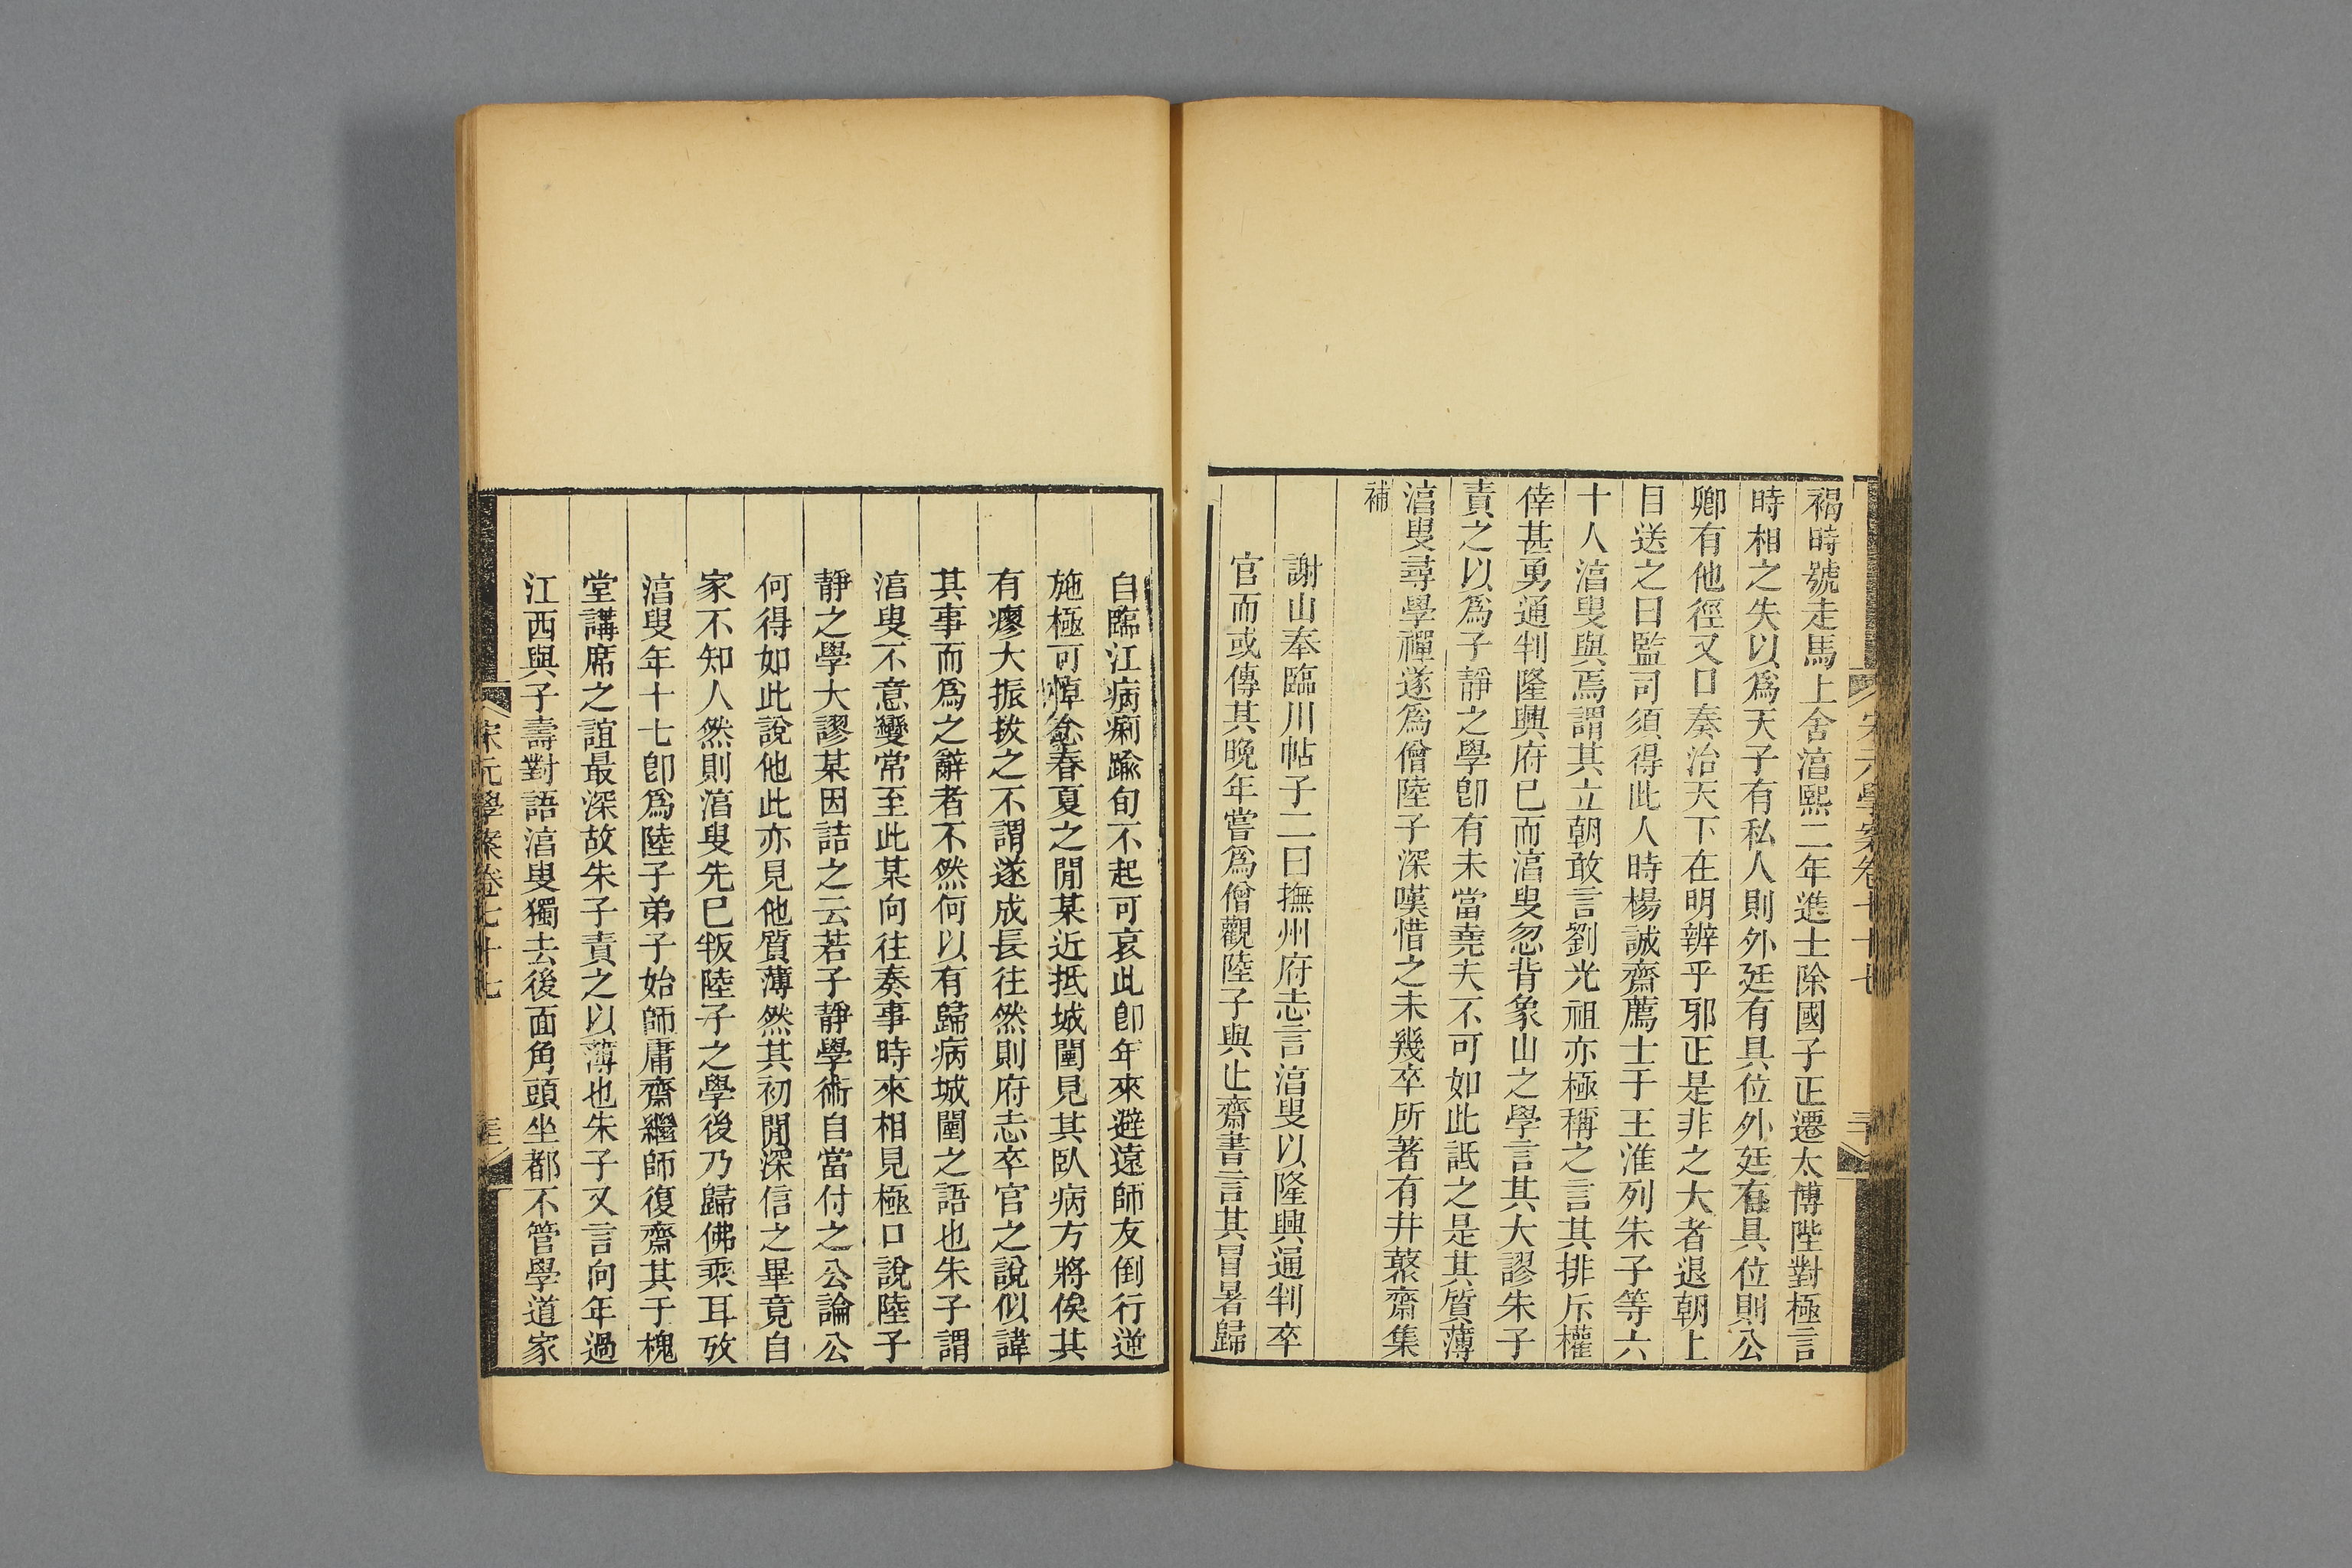 褐時號走馬上舍湻熙二年進士除國子正遷太博陛對極言
時相之失以爲天子有私人則外廷有具位外廷有具位則公
卿有他徑又口奏治天下在明辨乎邪正是非之大者退朝上
目送之曰監司須得此人時楊誠齋薦士于王淮列朱子等六
十人湻叟與焉謂其立朝敢言劉光祖亦極稱之言其排斥權
倖甚勇通判隆興府已而湻叟忽背象山之學言其大謬朱子
責之以爲子靜之學卽有未當堯夫不可如此詆之是其質薄
湻叟尋學禪遂爲僧陸子深嘆惜之未幾卒所著有井齋集
補
謝山奉臨川帖子二曰撫州府志言湻叟以隆興通判卒
官而或傳其晚年嘗爲僧觀陸子與止齋書言其冒暑歸
宋元學案卷七十七
自臨江病痢踰旬不起可哀此卽年來避遠師友倒行逆
施極可悼念春夏之閒某近抵城闉見其臥病方將俟其
有瘳大振拔之不謂遂成長往然則府志卒官之說似諱
其事而爲之辭者不然何以有歸病城闉之語也朱子謂
湻叟不意變常至此某向往奏事時來相見極口說陸子
靜之學大謬某因詰之云若子靜學術自當付之公論公
何得如此說他此亦見他質薄然其初閒深信之畢竟自
家不知人然則湻叟先已叛陸子之學後乃歸佛乘耳攷
湻叟年十七卽爲陸子弟子始師庸齋繼師復齋其于槐
堂講席之誼最深故朱子責之以薄也朱子又言向年過
江西與子壽對語湻叟獨去後面角頭坐都不管學道家
宋元學案卷七十七